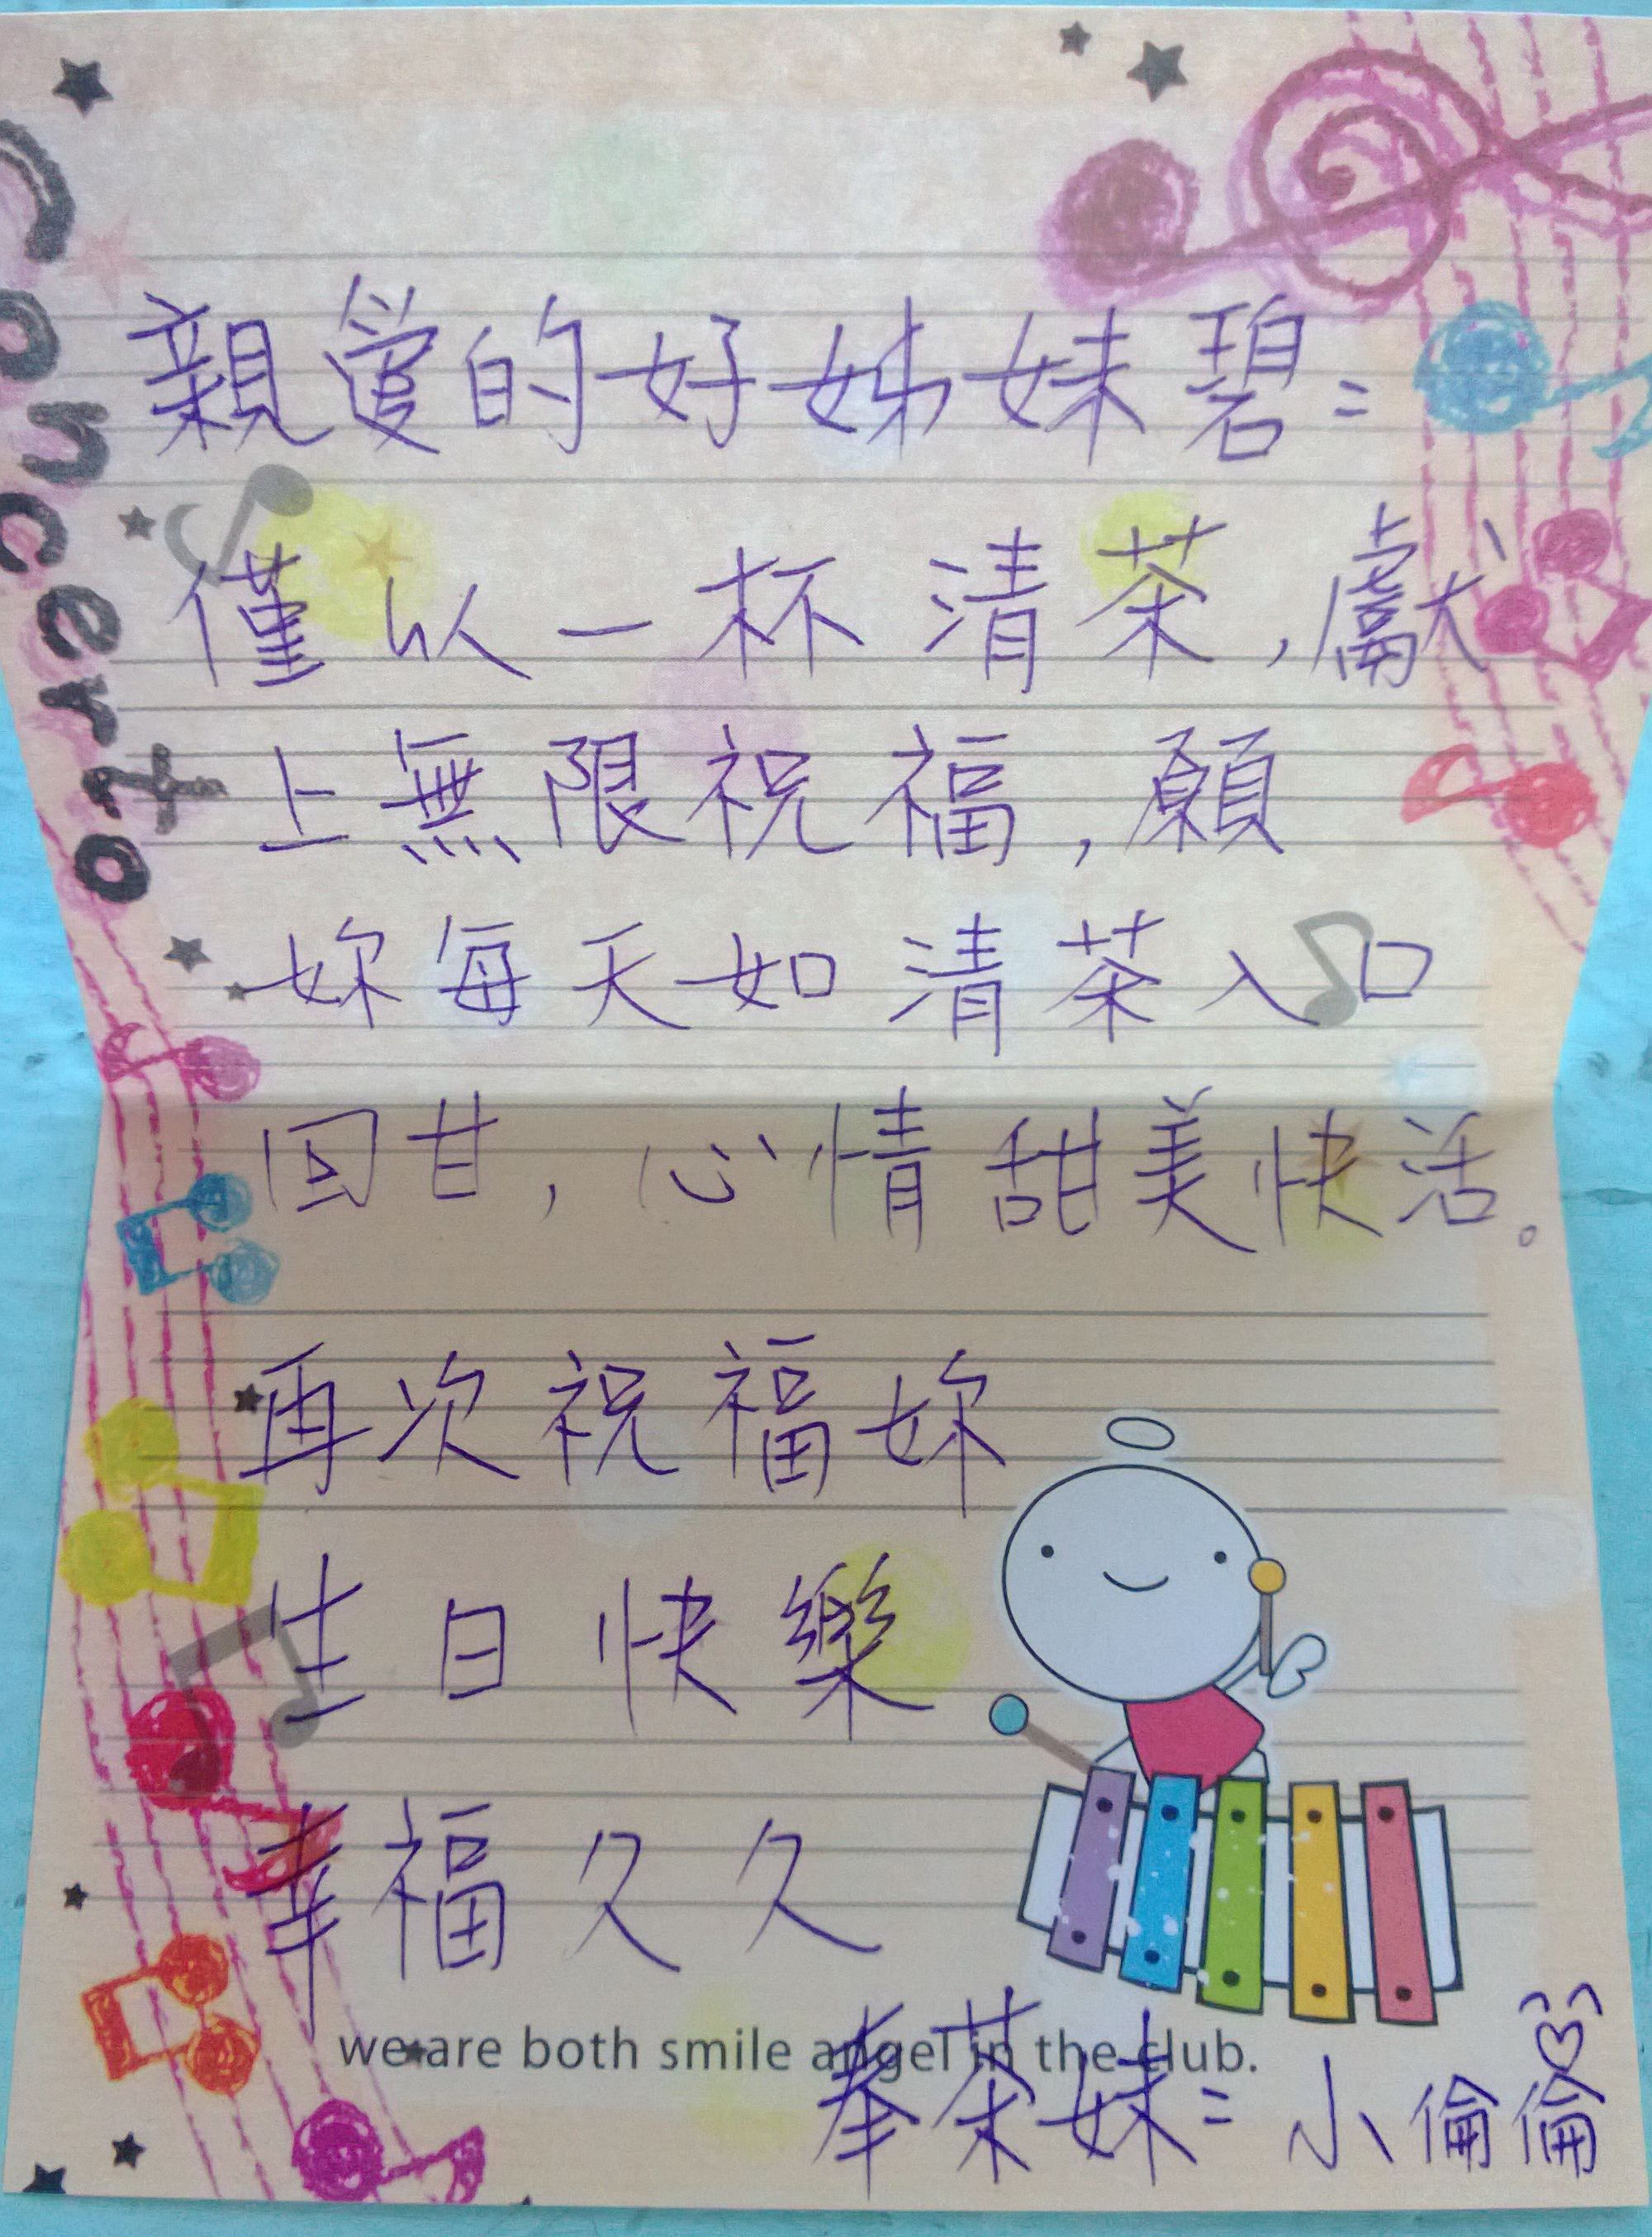 Concerto
親愛的好姊妹碧：
僅以一杯清茶，獻
上無限祝福，願
妳每天如清茶入口
回甘，心情甜美快活。
再次祝福妳
生日快樂
幸福久久
we are both smile angel in the club.
奉茶妹：小倫倫